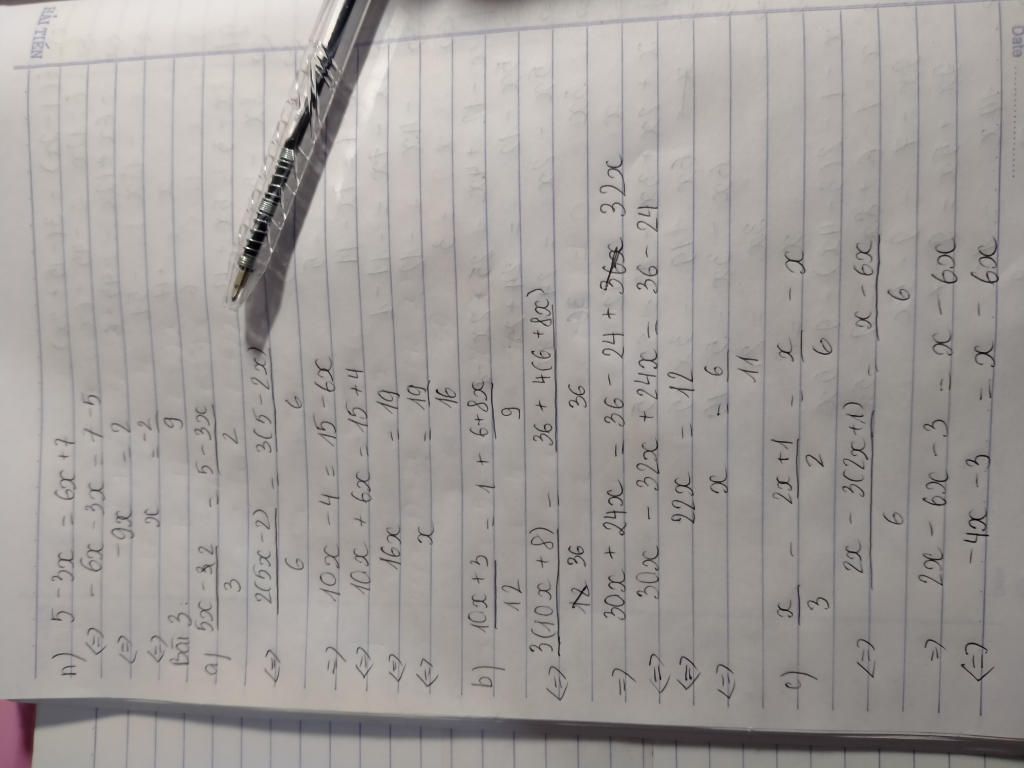 HẢI TIẾN
Date
n) 5 - 3x = 6x + 7
(=) - 6x - 3x = 7 - 5
(=) -9x = 2
(=) x = -2/9
Bài 3:
a) 5x - 2/3 = 5 - 3x/2
(=) 2(5x - 2)/6 = 3(5 - 2x)/6
=) 10x - 4 = 15 - 6x
(=) 10x + 6x = 15 + 4
(=) 16x = 19
(=) x = 19/16
b) 10x + 3/12 = 1 + 6 + 8x/9
(=) 3(10x + 8)/36 = 36 + 4(6 + 8x)/36
=) 30x + 24x = 36 - 24 + 32x
(=) 30x - 32x + 24x = 36 - 24
(=) 22x = 12
(=) x = 6/11
c) x/3 - 2x + 1/2 = x/6 - x
(=) 2x - 3(2x + 1)/6 = x - 6x/6
=) 2x - 6x - 3 = x - 6x
(=) -4x - 3 = x - 6x